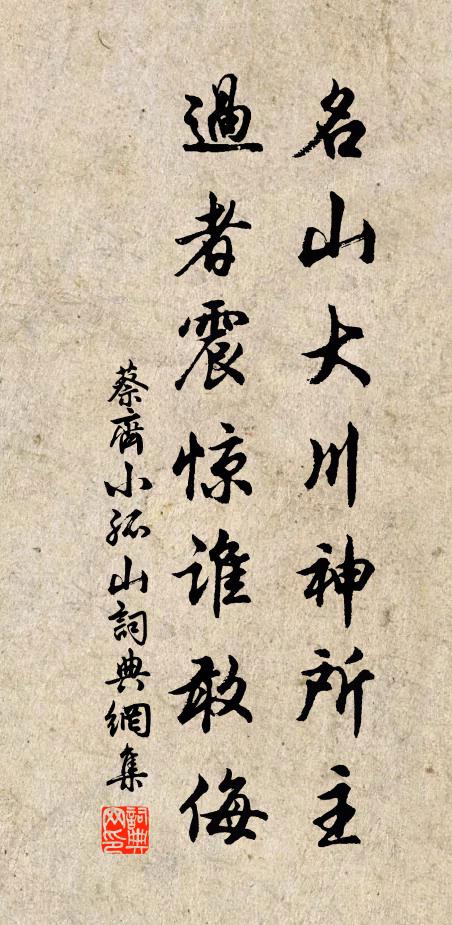 名山大川神所主
過者震惊誰敢侮
蔡齊小孤山詞典網集
詞典网印